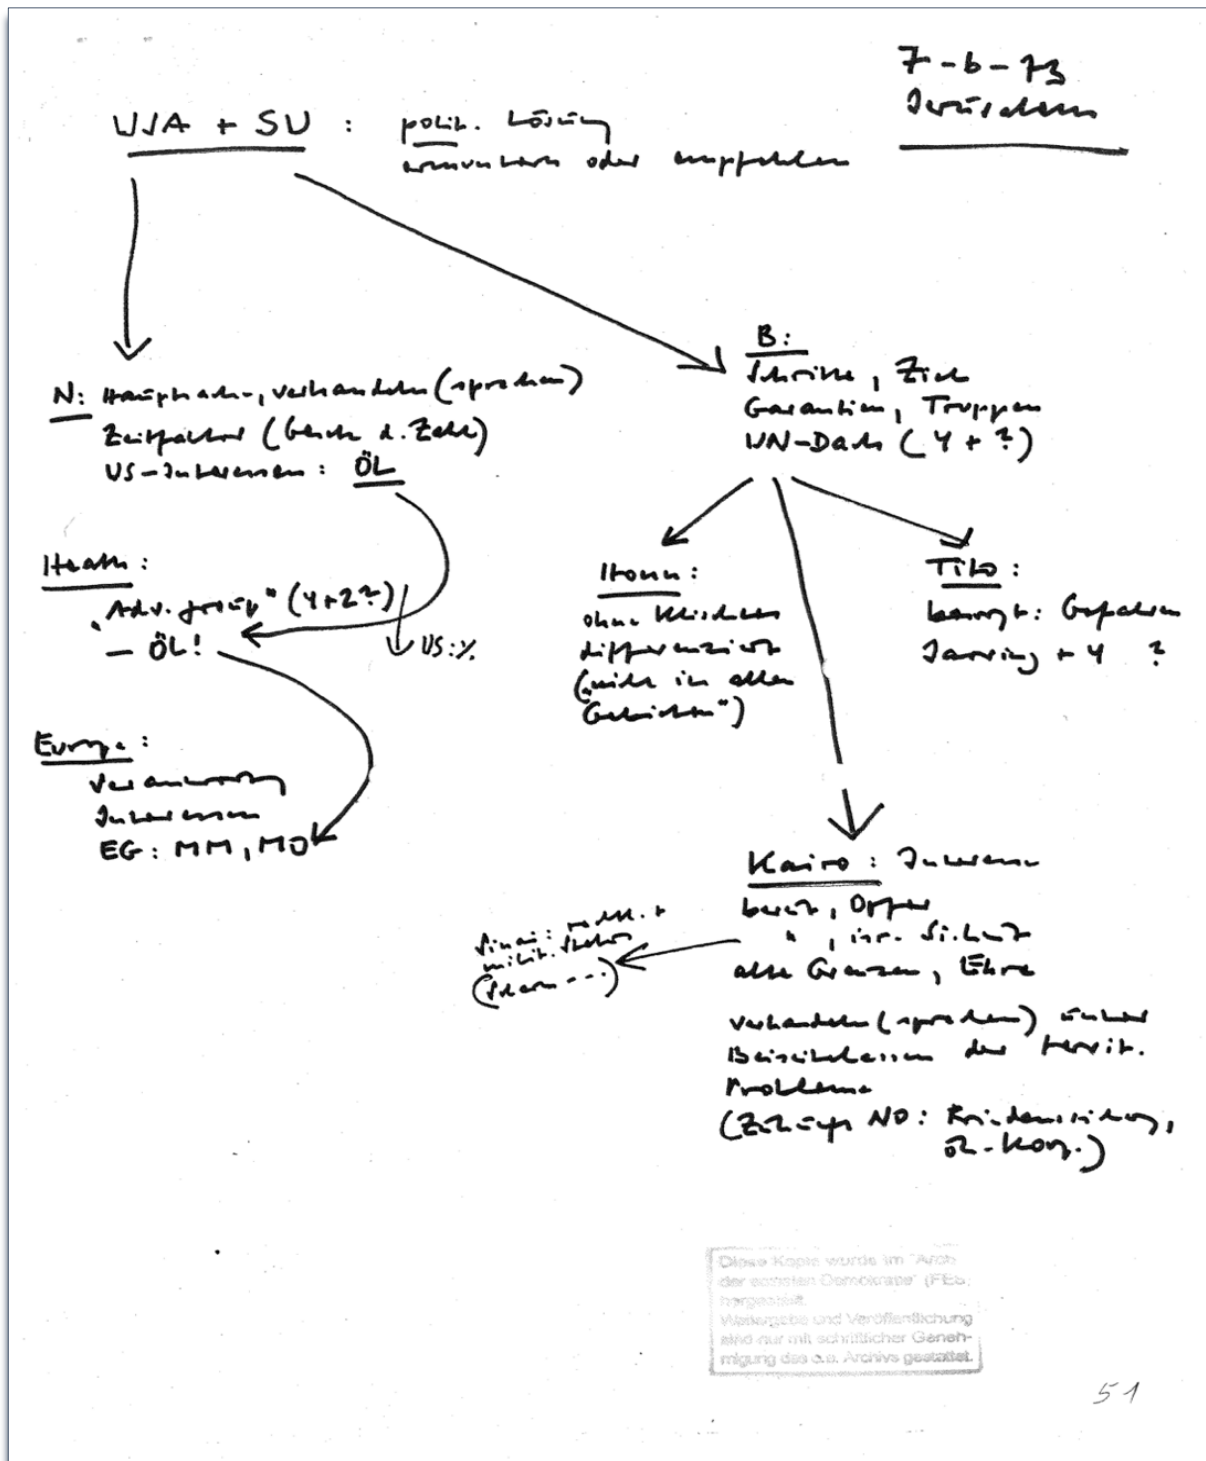 7-6-73
Jerusalem
USA + SU : polit. Lösung
oder empfehlen
N: Hauptsach-, verhandeln (sprechen)
Zeitfaktor (Gesch. d. Zahl)
US-Interessen : ÖL
B:
Schritte, Ziele
Garantien, Truppen
UN-Dach (4 + ?)
Heath :
"Adv. group" (4+2?)
— ÖL!
US: %
Europa :
Verantwortung
Interessen
EG : MM, MO
Honn :
ohne Klischees
differenziert
("nicht in allen
Gebieten")
Tito :
besorgt : Gefahren
Jarring + 4 ?
Kairo : Interesse
bereit, Opfer
" , isr. Sicherh
alte Grenzen, Ehre
Sinai :
milit.
(Scharm ---)
verhandeln (sprechen) unter
Beiseitelassen der territ.
Probleme
(Zukunft NO : Friedenssicherung,
ök. Koop.)
Diese Kopie wurde im "Arch
der sozialen Demokratie" (FES)
hergestellt.
Weitergabe und Veröffentlichung
sind nur mit schriftlicher Geneh-
migung des o.a. Archivs gestattet.
51